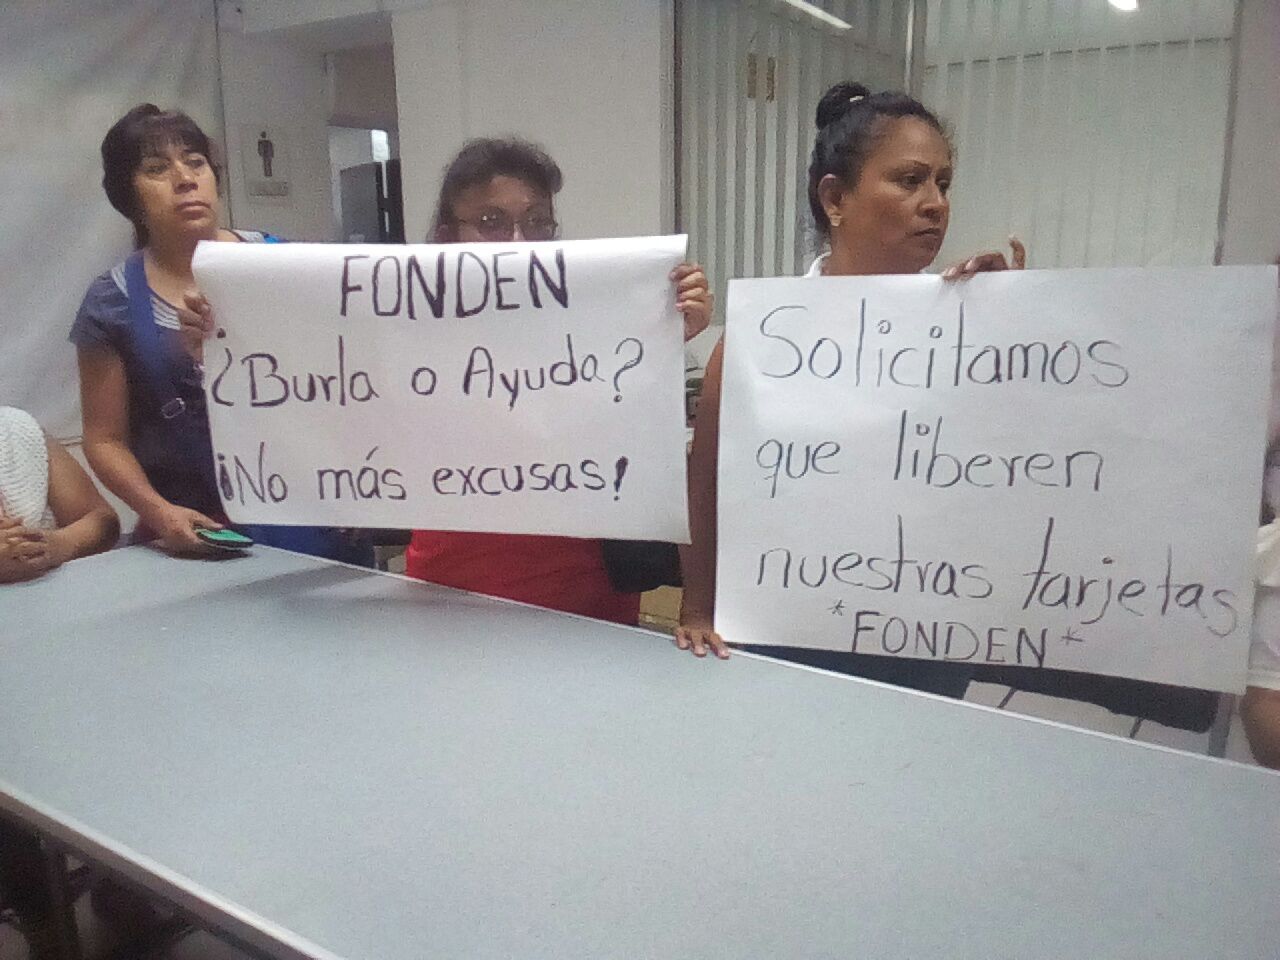 FONDEN
¿Burla o Ayuda?
¡No más excusas!
Solicitamos
que liberen
nuestras tarjetas
*FONDEN*